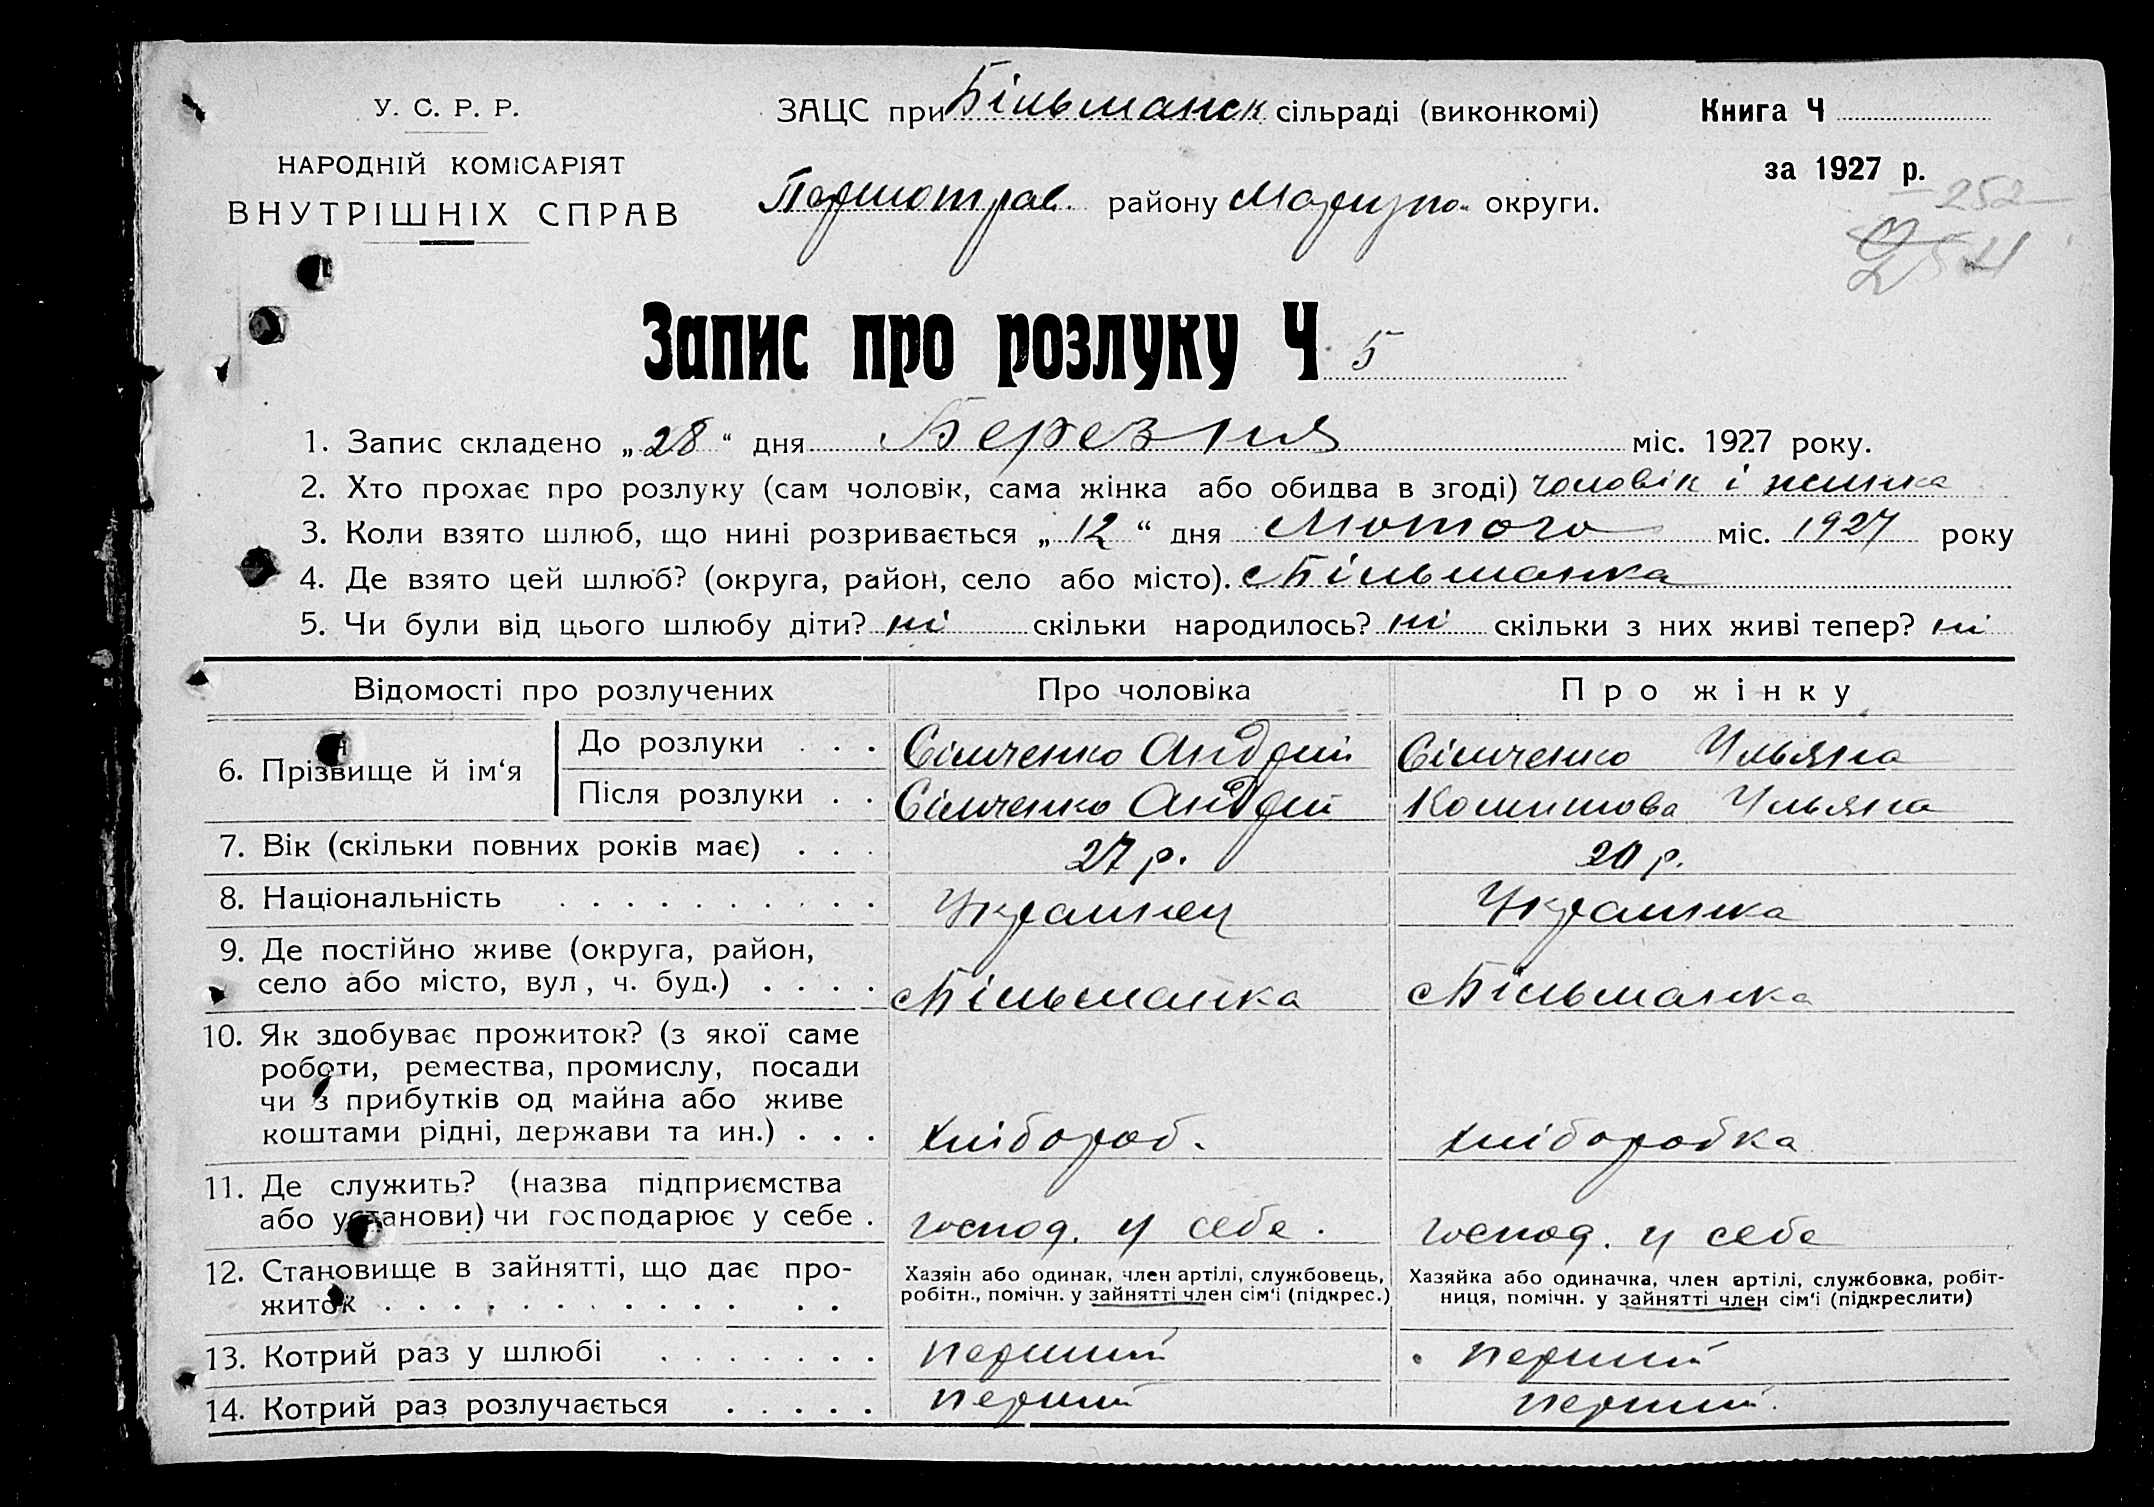 У. С. Р. Р.
НАРОДНІЙ КОМІСАРІЯТ
ВНУТРІШНІХ СПРАВ
ЗАЦС при Більманск сільраді (виконкомі)
Першотрав. району Маріуп. округи.
Книга Ч
за 1927 р.
252
254
Запис про розлуку Ч 5
1. Запис складено „28“ дня Березня міс. 1927 року.
2. Хто прохає про розлуку (сам чоловік, сама жінка або обидва в згоді) чоловік і жинка
3. Коли взято шлюб, що нині розривається „12“ дня Лютого міс. 1927 року
4. Де взято цей шлюб? (округа, район, село або місто). с Більманка
5. Чи були від цього шлюбу діти? ні скільки народилось? ні скільки з них живі тепер? ні
Відомості про розлучених Про чоловіка Про жінку
6. Прізвище й ім‘я
До розлуки . . . Сімченко Андрій Сімченко Ульяна
Після розлуки . . Сімченко Андрій Ульяна
7. Вік (скільки повних років має) . . . 27 р. 20 р.
8. Національність . . . . . . . . . . Украинец Украинка
9. Де постійно живе (округа, район,
село або місто, вул, ч. буд.) . . . . с Більманка с Більманка
10. Як здобуває прожиток? (з якої саме
роботи, ремества, промислу, посади
чи з прибутків од майна або живе
коштами рідні, держави та ин.) . . . хлібороб. хліборобка
11. Де служить? (назва підприємства
або установи) чи господарює у себе . господ. у себе. господ. у себе
12. Становище в зайнятті, що дає про-
житок . . . . . . . . . . . .
Хазяін або одинак, член артілі, службовець,
робітн., помічн. у зайнятті член сім‘і (підкрес.)
Хазяйка або одиначка, член артілі, службовка, робіт-
ниця, помічн. у зайнятті член сім‘і (підкреслити)
13. Котрий раз у шлюбі . . . . . . . перший перший
14. Котрий раз розлучається . . . . . перший перший